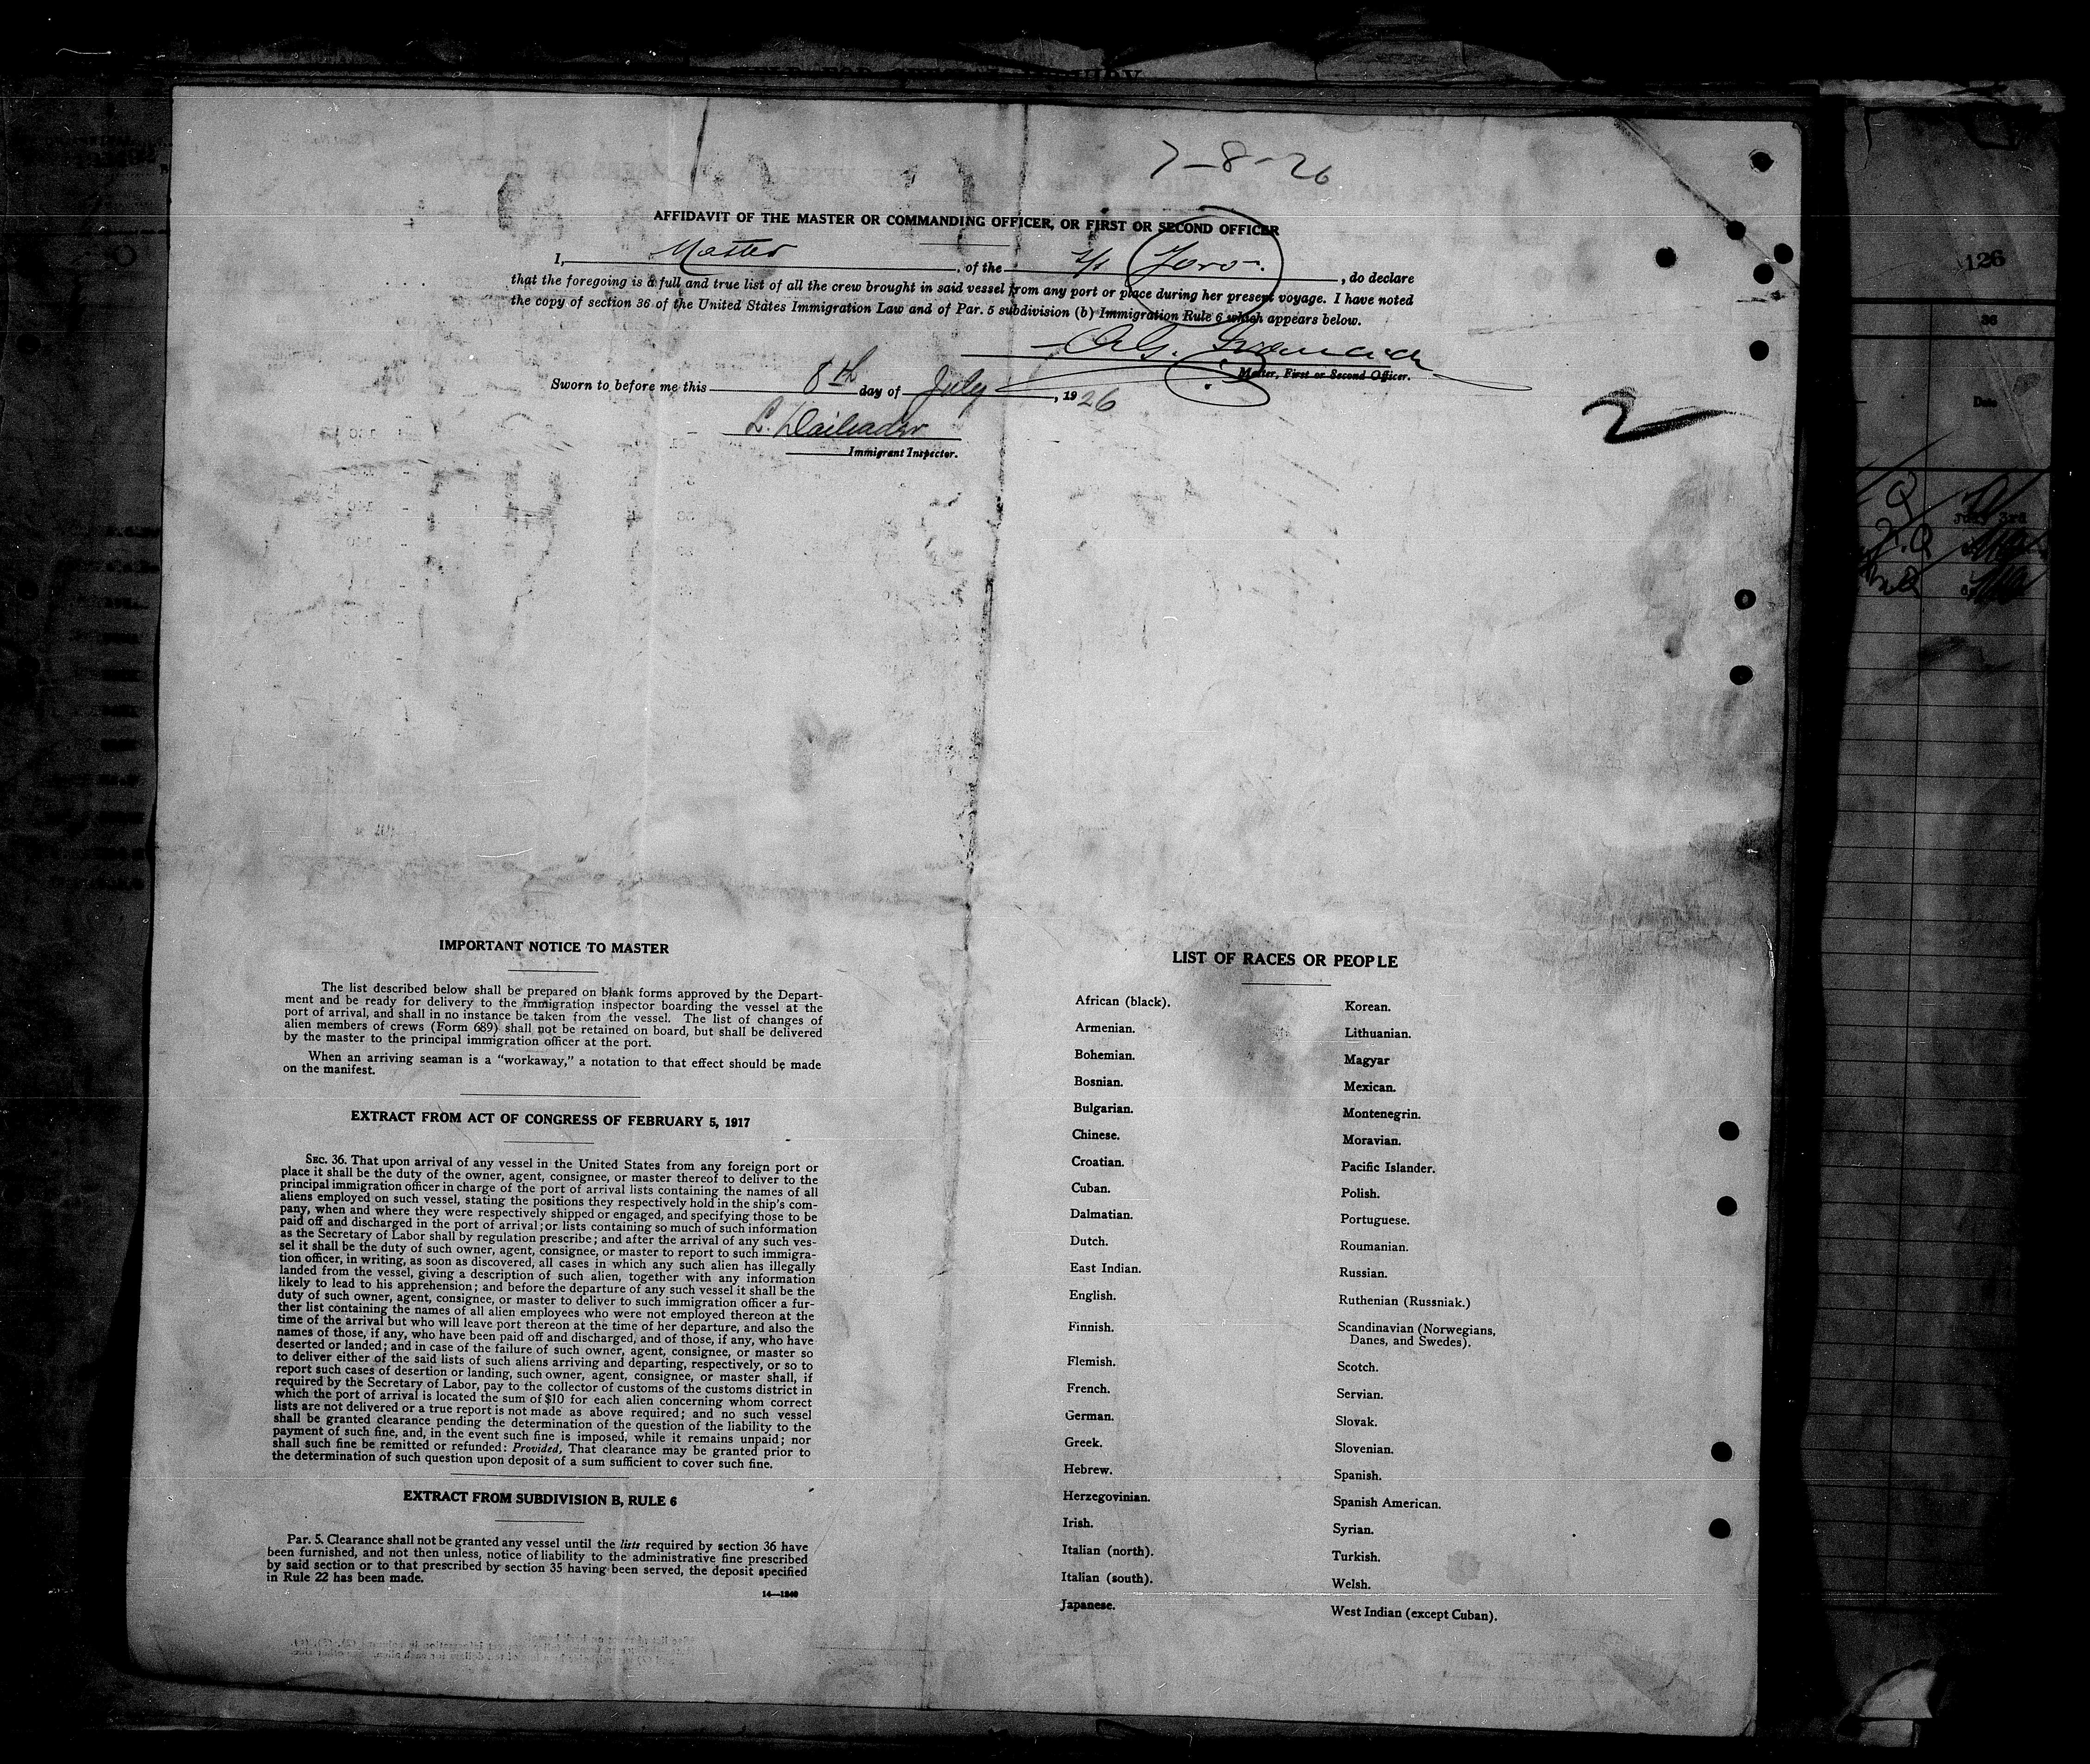 7-8-26
AFFIDAVIT OF THE MASTER OR COMMANDING OFFICER, OR FIRST OR SECOND OFFICER
I, Master, of the S/S Toro, do declare
that the foregoing is a full and true list of all the crew brought in said vessel from any port or place during her present voyage. I have noted
the copy of section 36 of the United States Immigration Law and of Par. 5 subdivision (b) Immigration Rule 6 which appears below.
Master, First or Second Officer.
Sworn to before me this 8th day of July, 1926
Immigrant Inspector.
2
IMPORTANT NOTICE TO MASTER
The list described below shall be prepared on blank forms approved by the Depart-
ment and be ready for delivery to the immigration inspector boarding the vessel at the
port of arrival, and shall in no instance be taken from the vessel. The list of changes of
alien members of crews (Form 689) shall not be retained on board, but shall be delivered
by the master to the principal immigration officer at the port.
When an arriving seaman is a "workaway," a notation to that effect should be made
on the manifest.
EXTRACT FROM ACT OF CONGRESS OF FEBRUARY 5, 1917
SEC. 36. That upon arrival of any vessel in the United States from any foreign port or
place it shall be the duty of the owner, agent, consignee, or master thereof to deliver to the
principal immigration officer in charge of the port of arrival lists containing the names of all
aliens employed on such vessel, stating the positions they respectively hold in the ship's com-
pany, when and where they were respectively shipped or engaged, and specifying those to be
paid off and discharged in the port of arrival; or lists containing so much of such information
as the Secretary of Labor shall by regulation prescribe; and after the arrival of any such ves-
sel it shall be the duty of such owner, agent, consignee, or master to report to such immigra-
tion officer, in writing, as soon as discovered, all cases in which any such alien has illegally
landed from the vessel, giving a description of such alien, together with any information
likely to lead to his apprehension; and before the departure of any such vessel it shall be the
duty of such owner, agent, consignee, or master to deliver to such immigration officer a fur-
ther list containing the names of all alien employees who were not employed thereon at the
time of the arrival but who will leave port thereon at the time of her departure, and also the
names of those, if any, who have been paid off and discharged, and of those, if any, who have
deserted or landed; and in case of the failure of such owner, agent, consignee, or master so
to deliver either of the said lists of such aliens arriving and departing, respectively, or so to
report such cases of desertion or landing, such owner, agent, consignee, or master shall, if
required by the Secretary of Labor, pay to the collector of customs of the customs district in
which the port of arrival is located the sum of $10 for each alien concerning whom correct
lists are not delivered or a true report is not made as above required; and no such vessel
shall be granted clearance pending the determination of the question of the liability to the
payment of such fine, and, in the event such fine is imposed, while it remains unpaid; nor
shall such fine be remitted or refunded: Provided, That clearance may be granted prior to
the determination of such question upon deposit of a sum sufficient to cover such fine.
EXTRACT FROM SUBDIVISION B, RULE 6
Par. 5. Clearance shall not be granted any vessel until the lists required by section 36 have
been furnished, and not then unless, notice of liability to the administrative fine prescribed
by said section or to that prescribed by section 35 having been served, the deposit specified
in Rule 22 has been made.
14—1340
LIST OF RACES OR PEOPLE
African (black).
Armenian.
Bohemian.
Bosnian.
Bulgarian.
Chinese.
Croatian.
Cuban.
Dalmatian.
Dutch.
East Indian.
English.
Finnish.
Flemish.
French.
German.
Greek.
Hebrew.
Herzegovinian.
Irish.
Italian (north).
Italian (south).
Japanese.
Korean.
Lithuanian.
Magyar
Mexican.
Montenegrin.
Moravian.
Pacific Islander.
Polish.
Portuguese.
Roumanian.
Russian.
Ruthenian (Russniak.)
Scandinavian (Norwegians,
Danes, and Swedes).
Scotch.
Servian.
Slovak.
Slovenian.
Spanish.
Spanish American.
Syrian.
Turkish.
Welsh.
West Indian (except Cuban).
126
36
Date
July 3rd